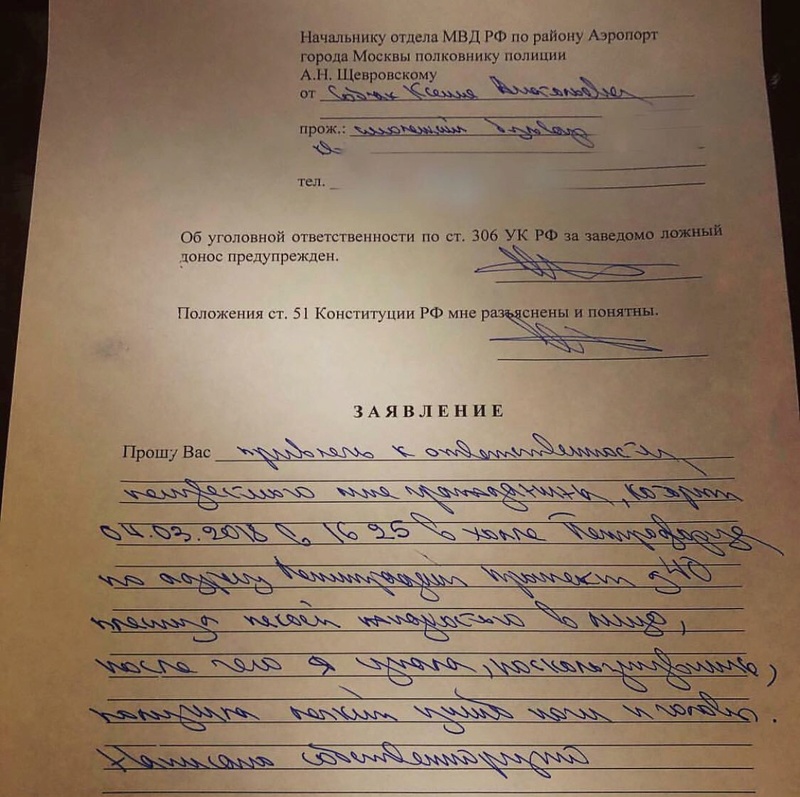 Начальнику отдела МВД РФ по району Аэропорт
города Москвы полковнику полиции
А.Н. Щевровскому
от Собчак Ксения Анатольевны
прож.:
тел.
Об уголовной ответственности по ст. 306 УК РФ за заведомо ложный
донос предупрежден.
Положения ст. 51 Конституции РФ мне разъяснены и понятны.
ЗАЯВЛЕНИЕ
Прошу Вас привлечь к ответственности
неизвестного мне гражданина, который
04.03.2018 в 16 25 в холле
по адресу Ленинградский проспект д 40
в лицо,
после чего я упала, поскользнувшись,
Написано собственноручно